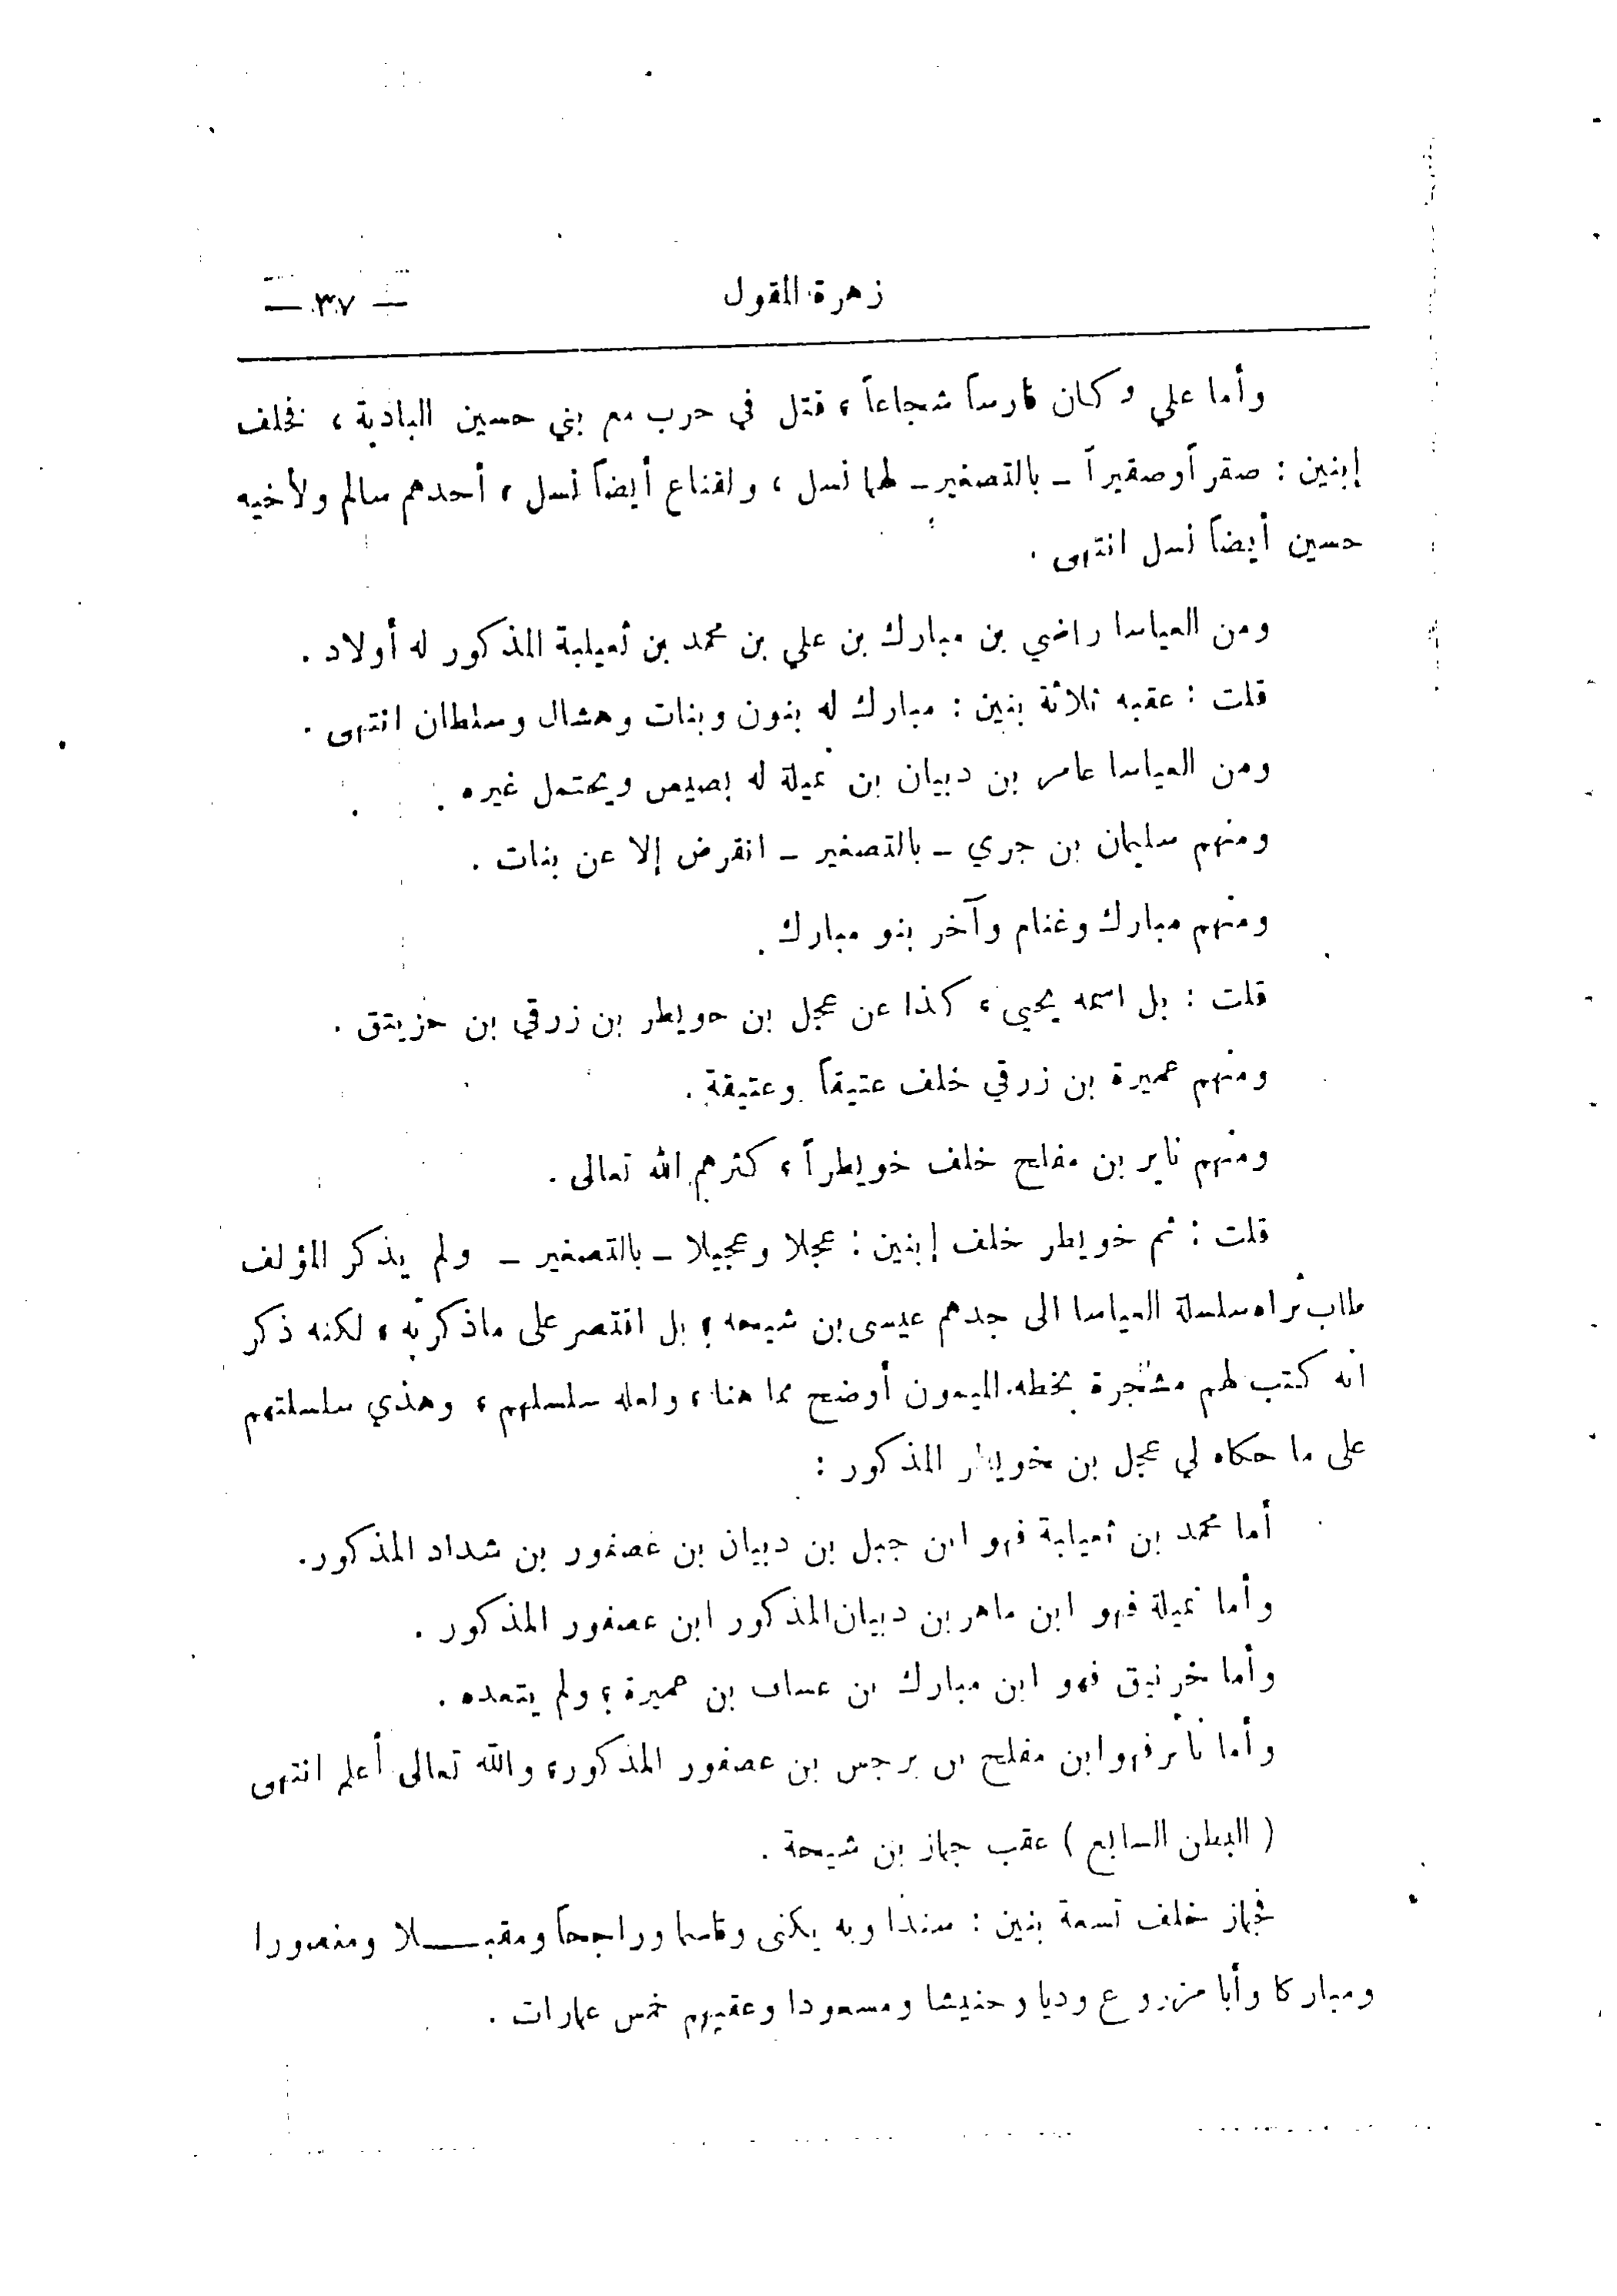 زهرة المقول
— ٣٧ —
وأما علي وكان فارساً شجاعاً، قتل في حرب مع بني حسين البادية، فخلف
إبنين : صقراً وصقيراً - بالتصغير - لهما نسل، ولقناع أيضاً نسل، أحدهم سالم ولأخيه
حسين أيضاً نسل انتهى .
ومن العياسا راضي بن مبارك بن علي بن محمد بن ثعيلبة المذكور له أولاد .
قلت : عقبه ثلاثة بنين : مبارك له بنون وبنات وهشال وسلطان انتهى .
ومن العياسا عامر بن دبيان بن نميلة له بصيص ويحتمل غيره .
ومنهم سليمان بن جري - بالتصغير - انقرض إلا عن بنات .
ومنهم مبارك وغنام وآخر بنو مبارك .
قلت : بل اسمه يحيى، كذا عن عجل بن حويطر بن زرقي بن
ومنهم عميرة بن زرقي خلف عتيقاً وعتيقة .
ومنهم ناير بن مفلح خلف خويطراً، كثرهم الله تعالى .
قلت : ثم خويطر خلف إبنين : عجلا وعجيلا - بالتصغير - ولم يذكر المؤلف
طاب ثراه سلسلة العياسا الى جدهم عيسى بن شيحه؛ بل اقتصر على ماذكرته، لكنه ذكر
انه كتب لهم مشجرة بخطه الميمون أوضح مما هنا، ولعله سلسلهم، وهذي سلسلتهم
على ما حكاه لي عجل بن خويطر المذكور :
أما محمد بن ثعيلبة فهو ابن جبل بن دبيان بن عصفور بن شداد المذكور.
وأما نميلة فهو ابن ماهر بن دبيان المذكور ابن عصفور المذكور .
وأما خرنيق فهو ابن مبارك بن عساف بن حميرة؛ ولم يتعده .
وأما نائر فهو ابن مفلح بن برجس بن عصفور المذكور، والله تعالى أعلم انتهى
( البطن السابع ) عقب جماز بن شيحة .
فجماز خلف تسعة بنين : سندا وبه يكنى وقاسما وراجحاً ومقبـــلا ومنصورا
ومباركا وأبا مزروع وديا وحنيشا ومسعودا وعقبهم خمس عمارات .